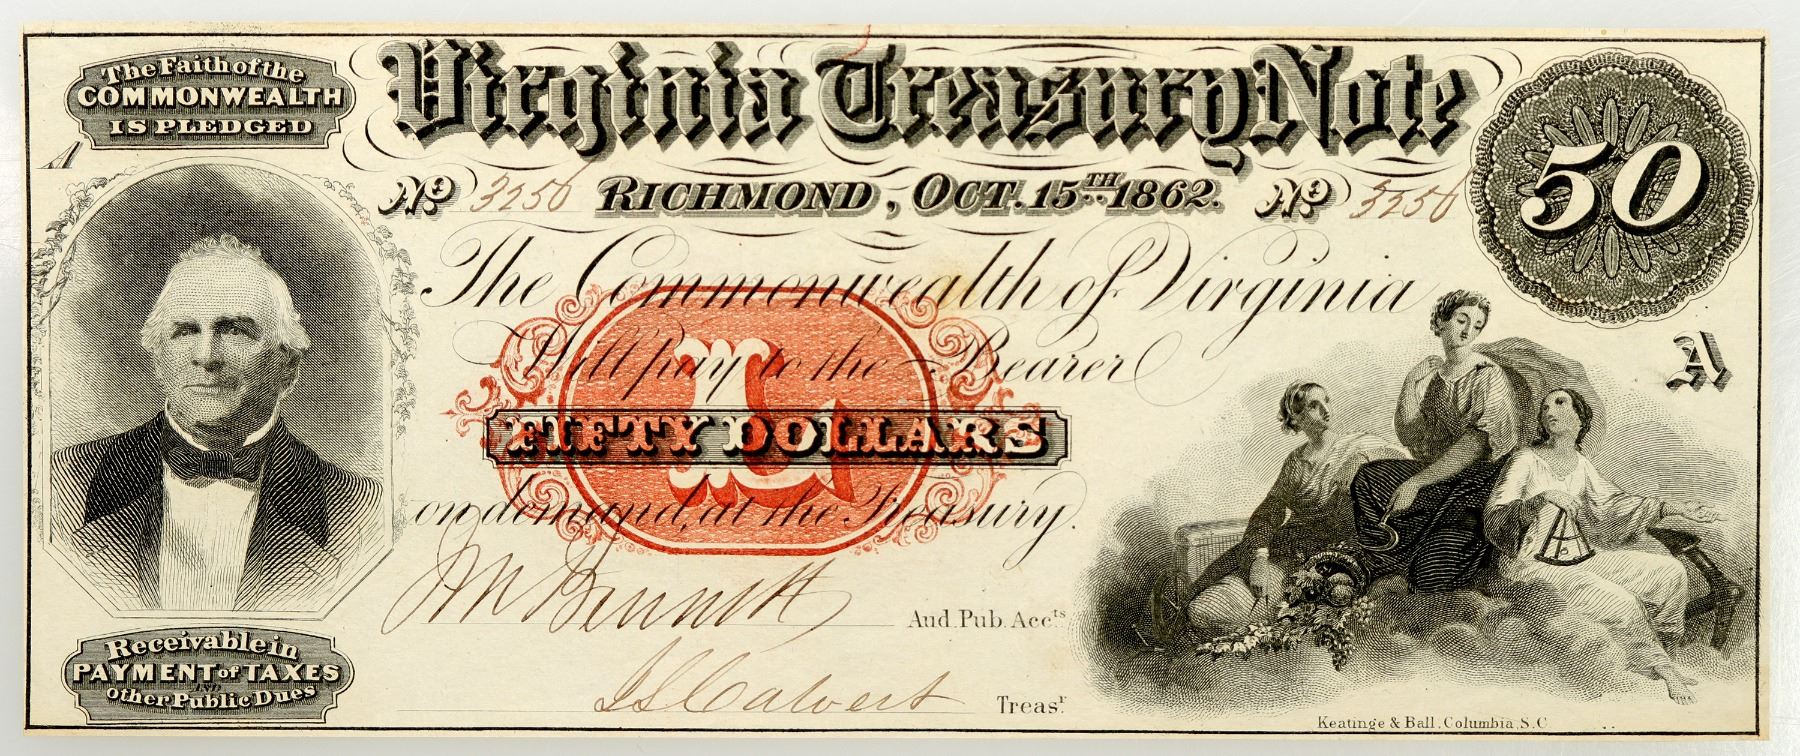 The Faith of the
COMMONWEALTH
IS PLEDGED
Virginia Treasury Note
50
A
No. 3256 RICHMOND, OCT. 15TH 1862. No. 3256
The Commonwealth of Virginia
Will pay to the Bearer
L
FIFTY DOLLARS
on demand, at the Treasury.
A
J M Bennett Aud. Pub. Accts
J S Calvert Treasr
Receivable in
PAYMENT of TAXES
AND
Other Public Dues
Keatinge & Ball, Columbia, S.C